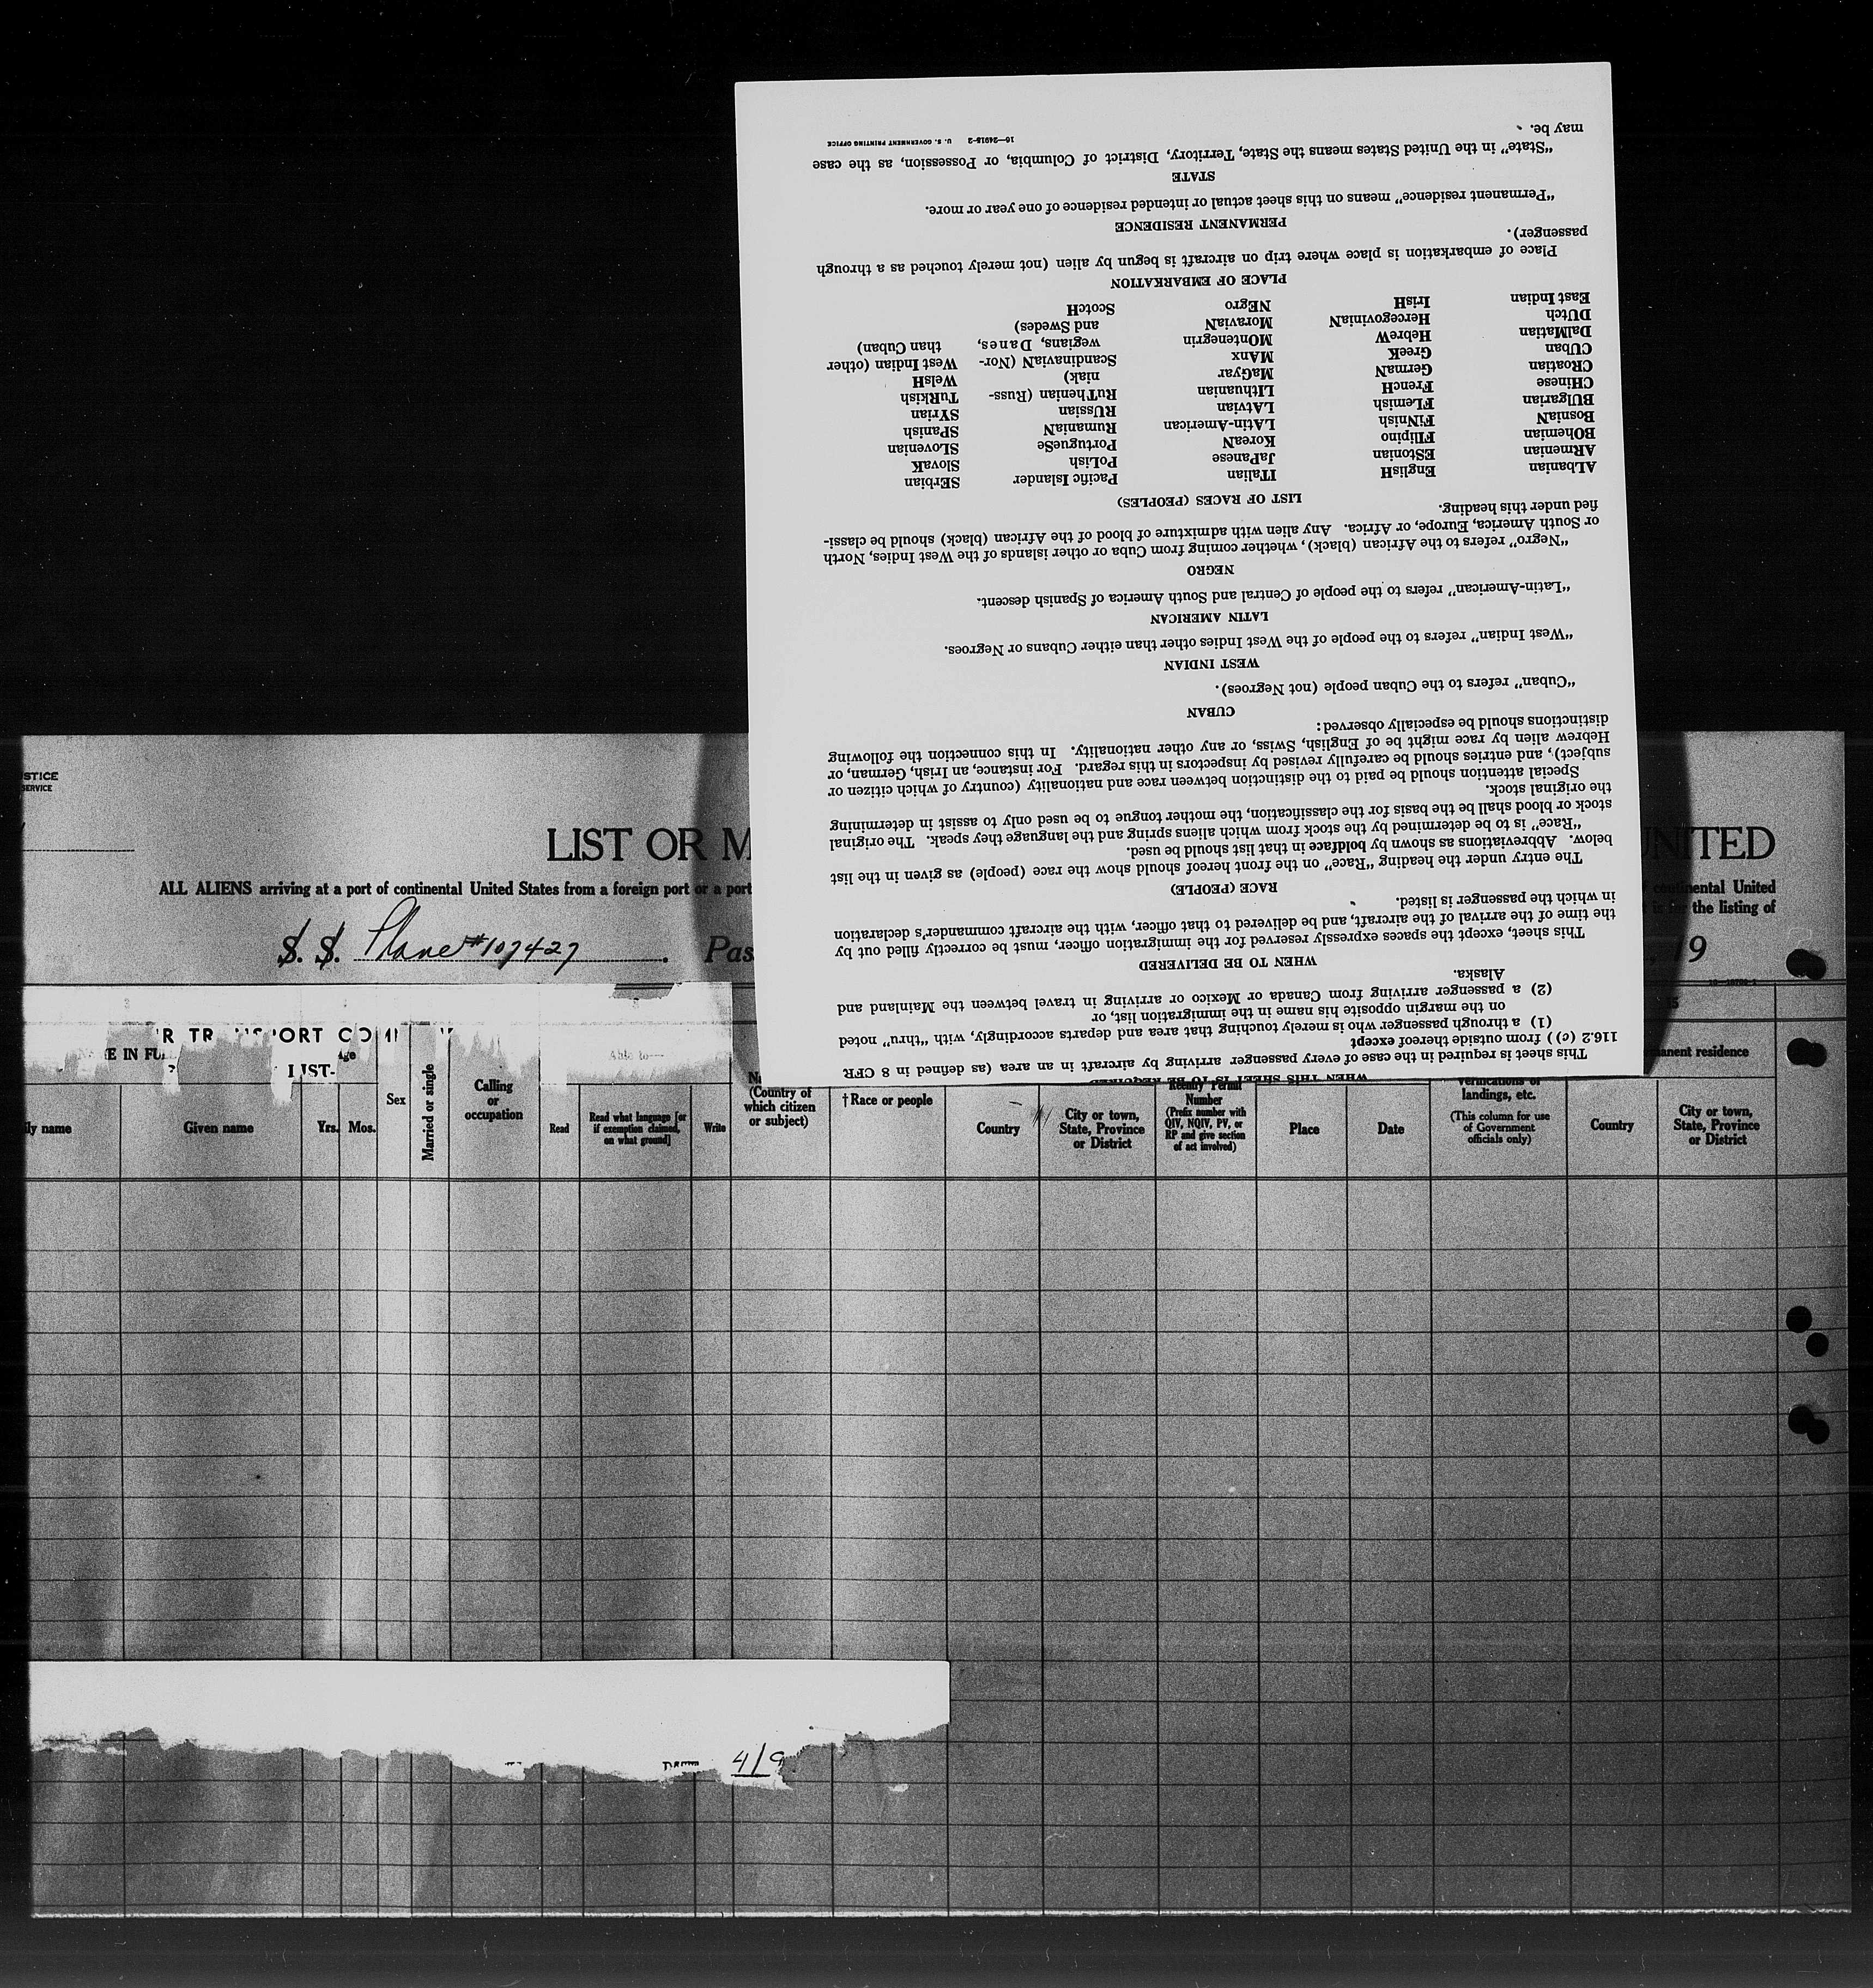 WHEN THIS SHEET IS TO BE REQUIRED
This sheet is required in the case of every passenger arriving by aircraft in an area (as defined in 8 CFR
116.2 (c)) from outside thereof except
(1) a through passenger who is merely touching that area and departs accordingly, with “thru” noted
on the margin opposite his name in the immigration list, or
(2) a passenger arriving from Canada or Mexico or arriving in travel between the Mainland and
Alaska.
WHEN TO BE DELIVERED
This sheet, except the spaces expressly reserved for the immigration officer, must be correctly filled out by
the time of the arrival of the aircraft, and be delivered to that officer, with the aircraft commander's declaration
in which the passenger is listed.
RACE (PEOPLE)
The entry under the heading “Race” on the front hereof should show the race (people) as given in the list
below. Abbreviations as shown by boldface in that list should be used.
“Race” is to be determined by the stock from which aliens spring and the language they speak. The original
stock or blood shall be the basis for the classification, the mother tongue to be used only to assist in determining
the original stock.
Special attention should be paid to the distinction between race and nationality (country of which citizen or
subject), and entries should be carefully revised by inspectors in this regard. For instance, an Irish, German, or
Hebrew alien by race might be of English, Swiss, or any other nationality. In this connection the following
distinctions should be especially observed:
CUBAN
“Cuban” refers to the Cuban people (not Negroes).
WEST INDIAN
“West Indian” refers to the people of the West Indies other than either Cubans or Negroes.
LATIN AMERICAN
“Latin-American” refers to the people of Central and South America of Spanish descent.
NEGRO
“Negro” refers to the African (black), whether coming from Cuba or other islands of the West Indies, North
or South America, Europe, or Africa. Any alien with admixture of blood of the African (black) should be classi-
fied under this heading.
LIST OF RACES (PEOPLES)
ALbanian
ARmenian
BOhemian
BosniaN
BUlgarian
CHinese
CRoatian
CUban
DalMatian
DUtch
East Indian
EnglisH
EStonian
FIlipino
FiNNish
FLemish
FrencH
GermaN
GreeK
HebreW
HercegoviniaN
IrisH
ITalian
JaPanese
KoreaN
LAtin-American
LAtvian
LIthuanian
MaGyar
MAnx
MOntenegrin
MoraviaN
NEgro
Pacific Islander
PoLish
PortugueSe
RumaniaN
RUssian
RuThenian (Russ-
niak)
ScandinaviaN (Nor-
wegians, Danes,
and Swedes)
ScotcH
SErbian
SlovaK
SLOvenian
SPanish
SYrian
TuRkish
WelsH
West Indian (other
than Cuban)
PLACE OF EMBARKATION
Place of embarkation is place where trip on aircraft is begun by alien (not merely touched as a through
passenger).
PERMANENT RESIDENCE
“Permanent residence” means on this sheet actual or intended residence of one year or more.
STATE
“State” in the United States means the State, Territory, District of Columbia, or Possession, as the case
may be.
16—24915-2 U. S. GOVERNMENT PRINTING OFFICE
STICE
SERVICE
LIST OR M
NITED
ALL ALIENS arriving at a port of continental United States from a foreign port or a port
continental United
the listing of
S. S. Plane #107427. Pas
, 19
R TR NSPORT COM
E IN FU
Age
LIST-
Able to—
manent residence
ly name
Given name
Yrs.
Mos.
Sex
Married or single
Calling
or
occupation
Read
Read what language [or
if exemption claimed,
on what ground]
Write
(Country of
which citizen
or subject)
†Race or people
Country
City or town,
State, Province
or District
Reentry Permit
Number
(Prefix number with
QIV, NQIV, PV, or
RP and give section
of act involved)
Place
Date
verifications of
landings, etc.
(This column for use
of Government
officials only)
Country
City or town,
State, Province
or District
4/9